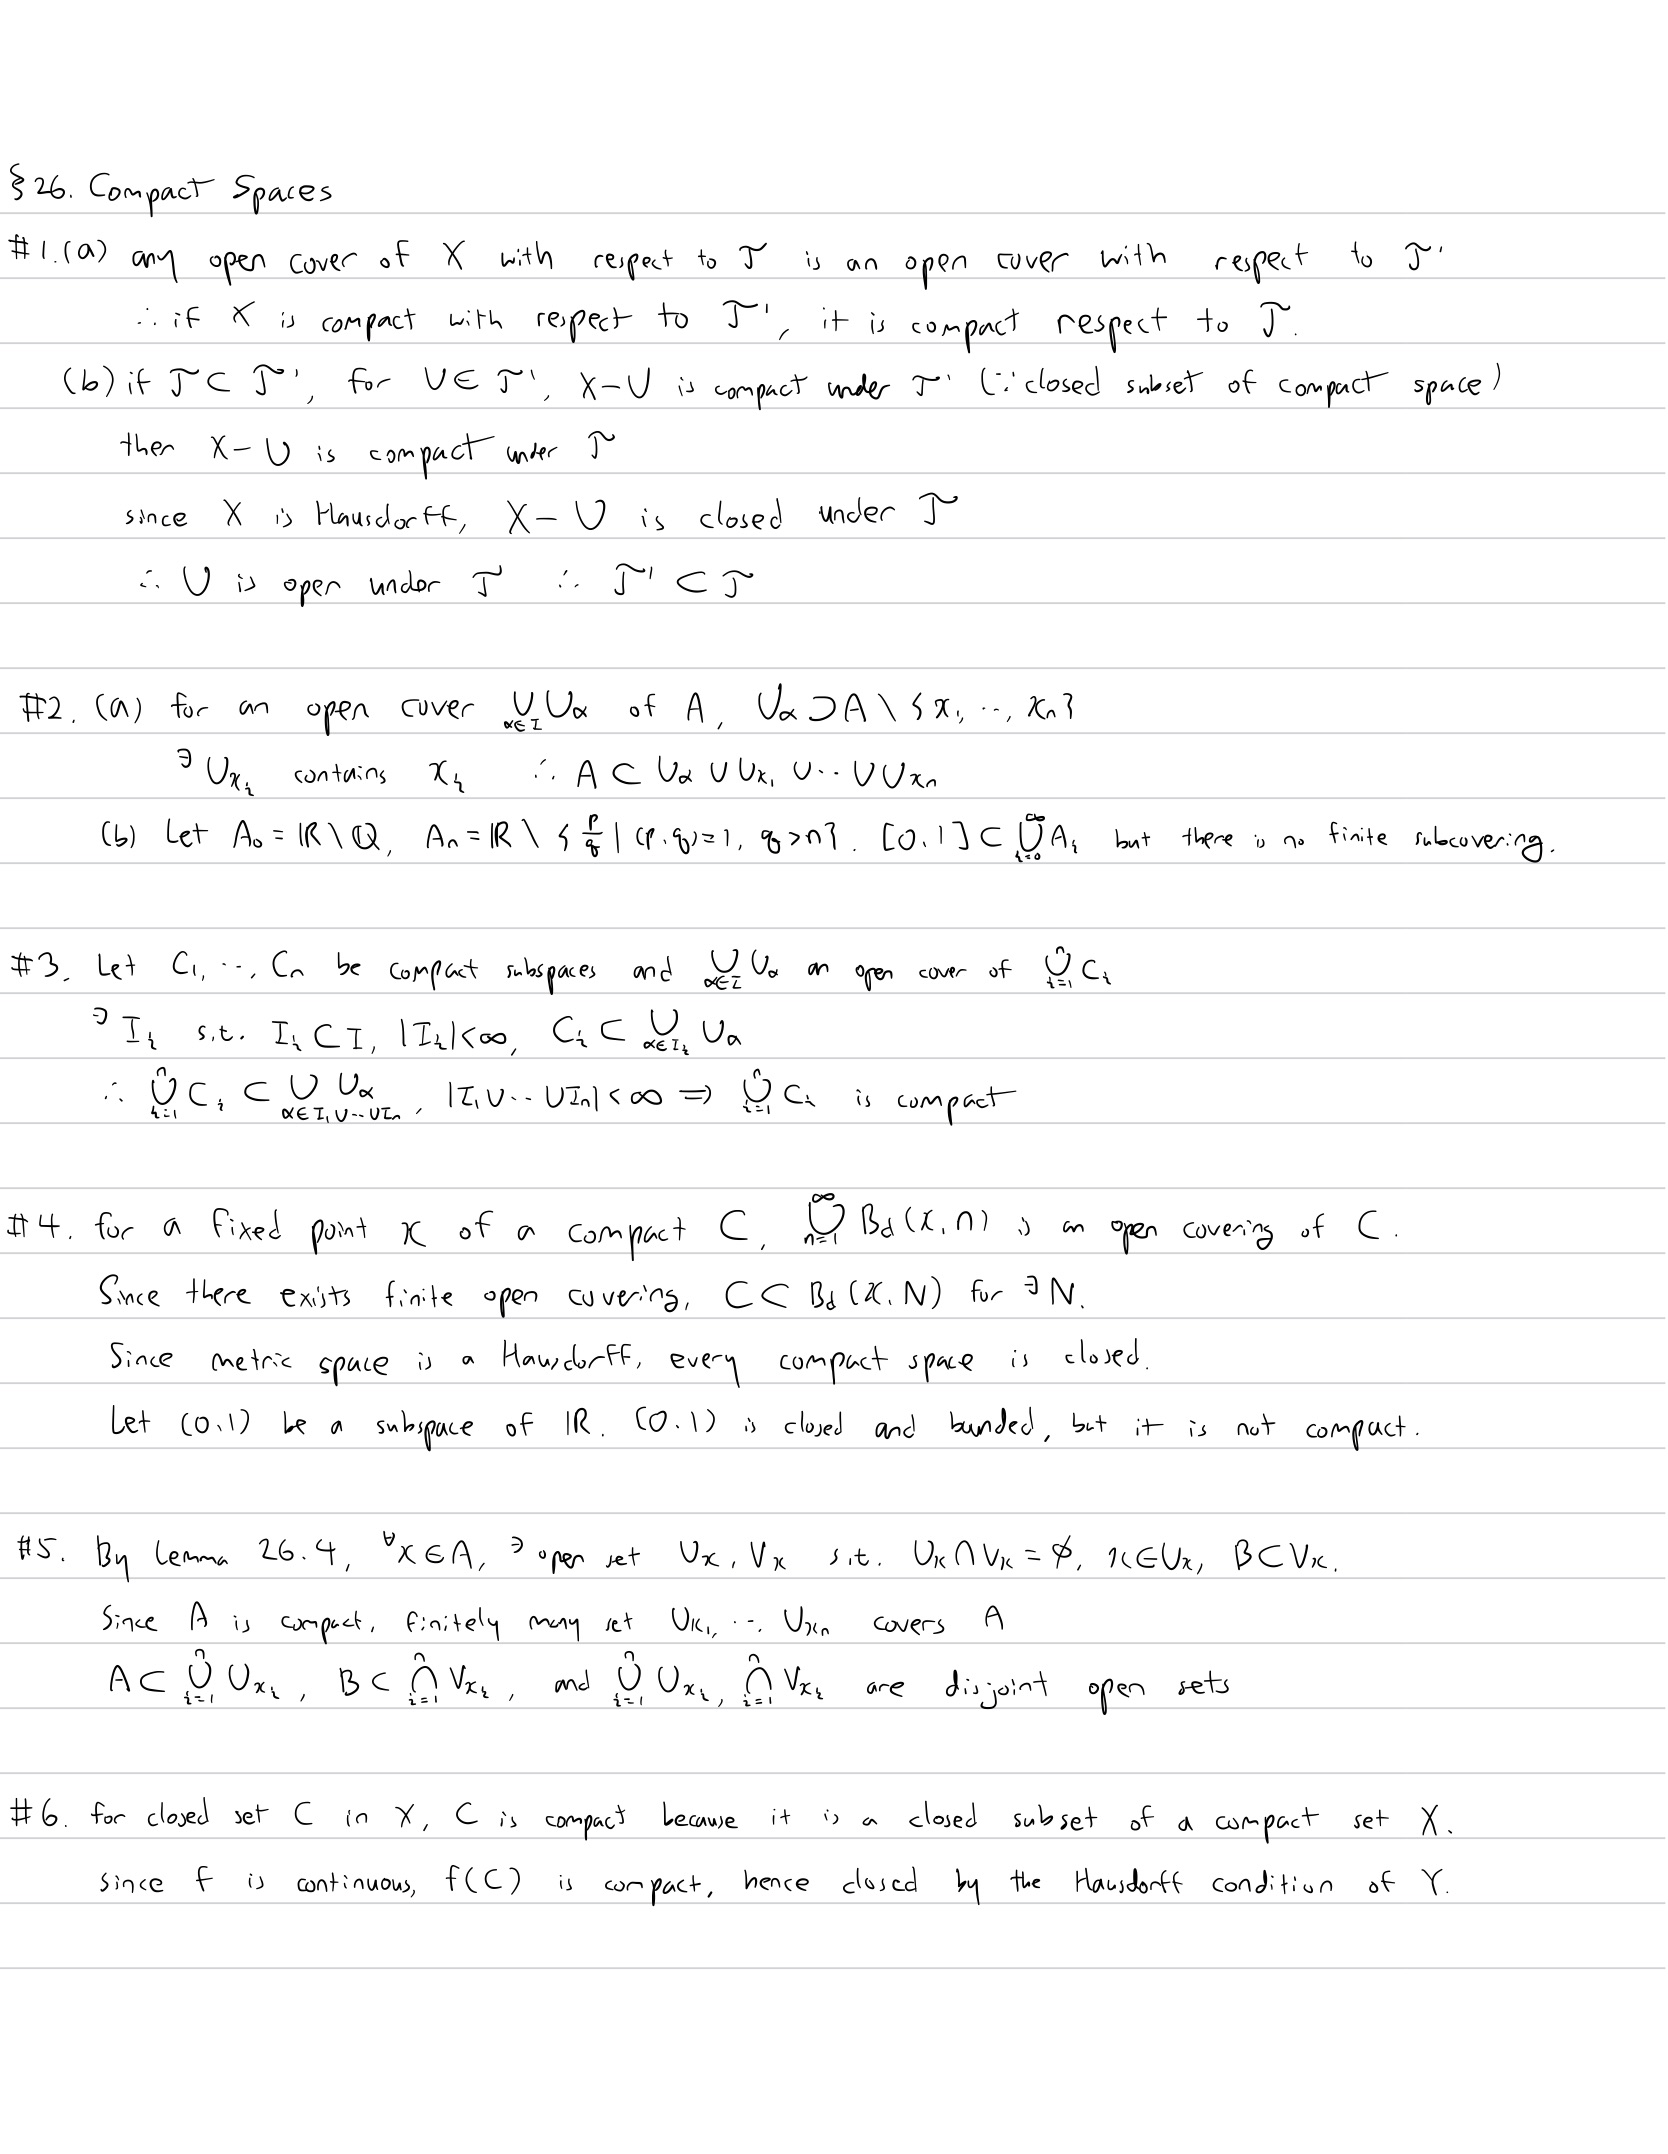 §26. Compact Spaces
#1.(a) any open cover of X with respect to T is an open cover with respect to T'
∴ if X is compact with respect to T', it is compact respect to T.
(b) if T⊂T', for U∈T', X-U is compact under T' (∵ closed subset of compact space)
then X-U is compact under T
since X is Hausdorff, X-U is closed under T
∴ U is open under T ∴ T'⊂T
#2. (a) for an open cover ⋃_{α∈I} Uα of A, Uα⊃A\{x₁, ‥, xₙ}
∃U_{x_i} contains x_i ∴ A⊂Uα∪U_{x₁}∪‥∪U_{xₙ}
(b) Let A₀=ℝ\ℚ, Aₙ=ℝ\{p/q | (p,q)=1, q>n}. [0,1]⊂⋃_{i=0}^∞ A_i but there is no finite subcovering.
#3. Let C₁, ‥, Cₙ be compact subspaces and ⋃_{α∈I} Uα an open cover of ⋃_{i=1}^n C_i
∃I_i s.t. I_i⊂I, |I_i|<∞, C_i⊂⋃_{α∈I_i} Uα
∴ ⋃_{i=1}^n C_i⊂⋃_{α∈I₁∪‥∪Iₙ} Uα, |I₁∪‥∪Iₙ|<∞ ⇒ ⋃_{i=1}^n C_i is compact
#4. for a fixed point x of a compact C, ⋃_{n=1}^∞ B_d(x,n) is an open covering of C.
Since there exists finite open covering, C⊂B_d(x,N) for ∃N.
Since metric space is a Hausdorff, every compact space is closed.
Let (0,1) be a subspace of ℝ. (0,1) is closed and bunded, but it is not compact.
#5. By Lemma 26.4, ∀x∈A, ∃ open set U_x, V_x s.t. U_x∩V_x=∅, x∈U_x, B⊂V_x.
Since A is compact, finitely many set U_{x₁}, ‥, U_{xₙ} covers A
A⊂⋃_{i=1}^n U_{x_i}, B⊂⋂_{i=1}^n V_{x_i}, and ⋃_{i=1}^n U_{x_i}, ⋂_{i=1}^n V_{x_i} are disjoint open sets
#6. for closed set C in X, C is compact because it is a closed subset of a compact set X.
since f is continuous, f(C) is compact, hence closed by the Hausdorff condition of Y.